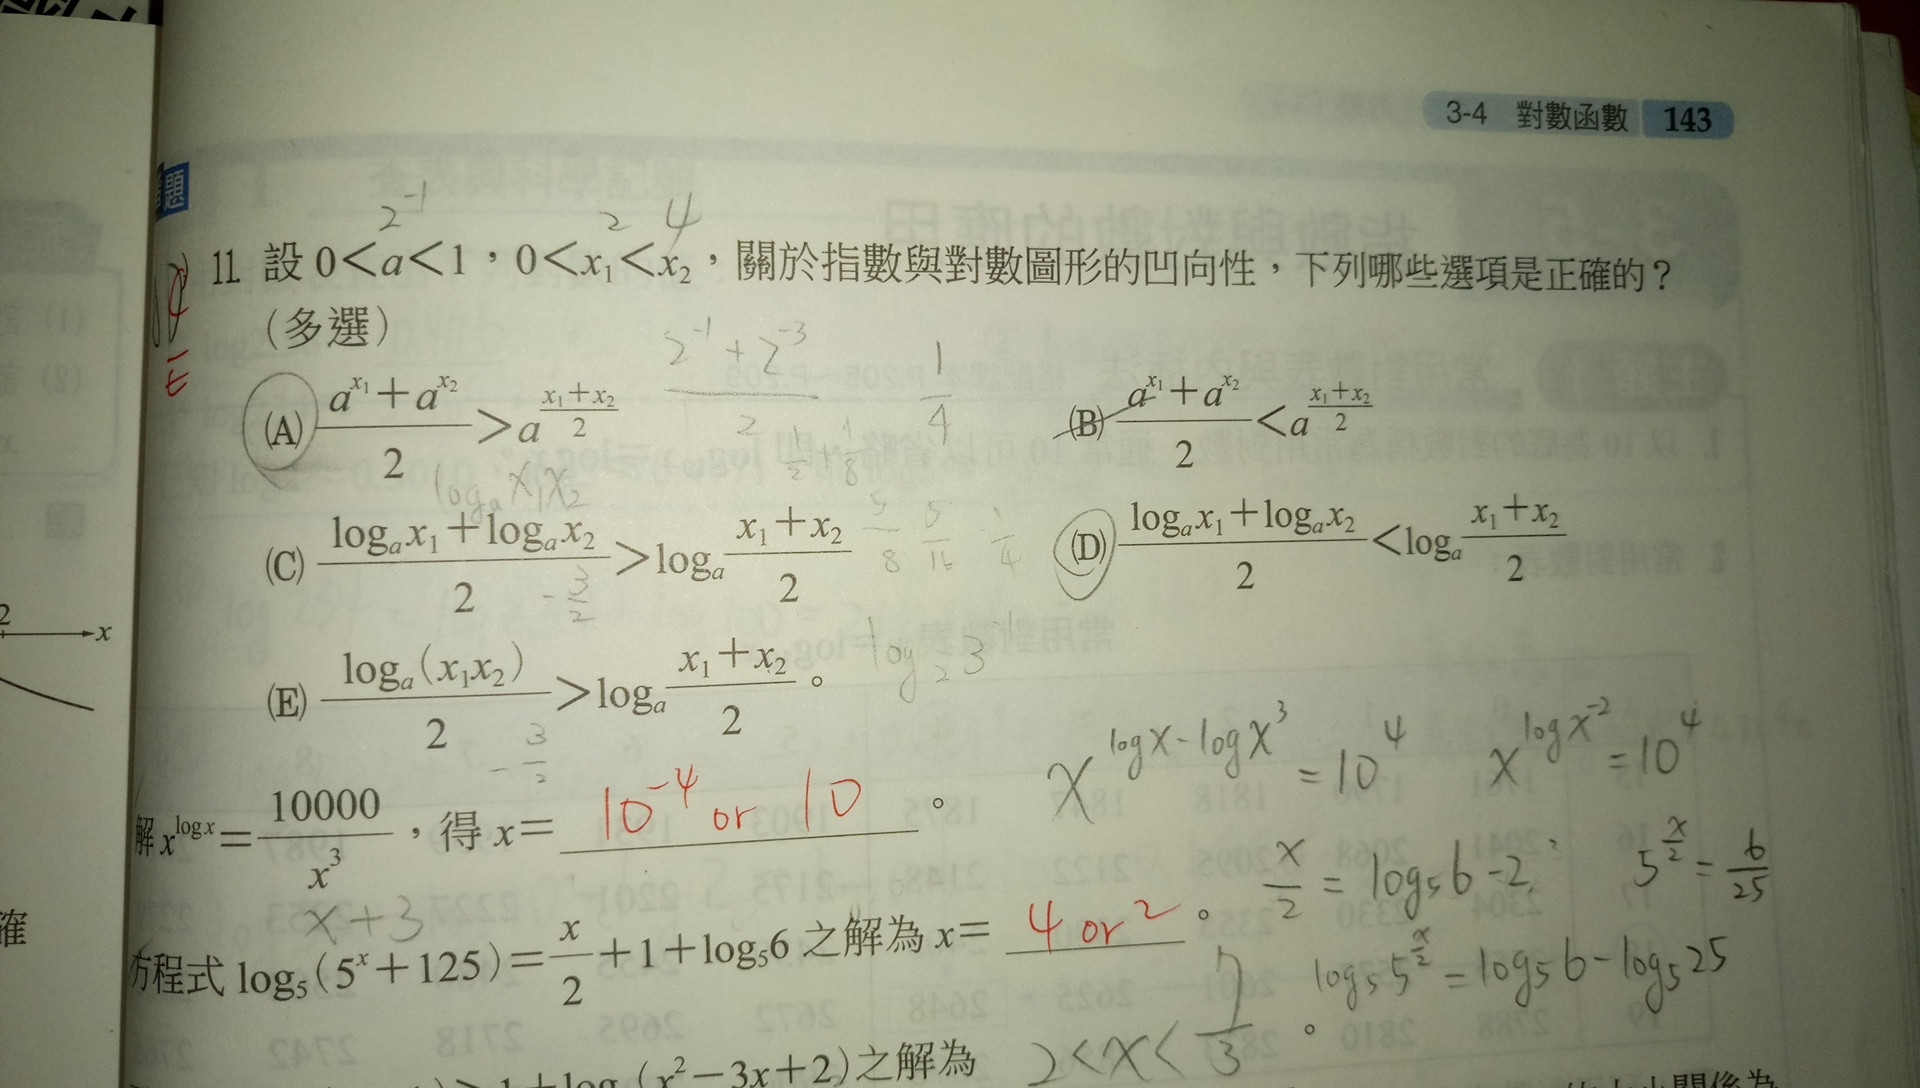 3-4 對數函數 143
題
2⁻¹ 2 4
11. 設 0<a<1,0<x₁<x₂,關於指數與對數圖形的凹向性,下列哪些選項是正確的?
(多選)
(A) (a^x₁+a^x₂)/2 > a^((x₁+x₂)/2) (2⁻¹+2⁻³)/2 1/4 (B) (a^x₁+a^x₂)/2 < a^((x₁+x₂)/2)
1/2+1/8
logₐx₁x₂
(C) (logₐx₁+logₐx₂)/2 > logₐ (x₁+x₂)/2 5/8 5/16 1/4 (D) (logₐx₁+logₐx₂)/2 < logₐ (x₁+x₂)/2
-3/2
(E) (logₐ(x₁x₂))/2 > logₐ (x₁+x₂)/2。 log₂3⁻¹
-3/2
x^(logx-logx³)=10⁴ x^(logx⁻²)=10⁴
解 x^(logx)=10000/x³,得 x= 10⁻⁴ or 10 。
x/2=log₅6-2 5^(x/2)=6/25
x+3
方程式 log₅(5ˣ+125)=x/2+1+log₅6 之解為 x= 4 or 2 。
log₅5^(x/2)=log₅6-log₅25
(x²-3x+2)之解為 2<x<7/3 。
2
x
確